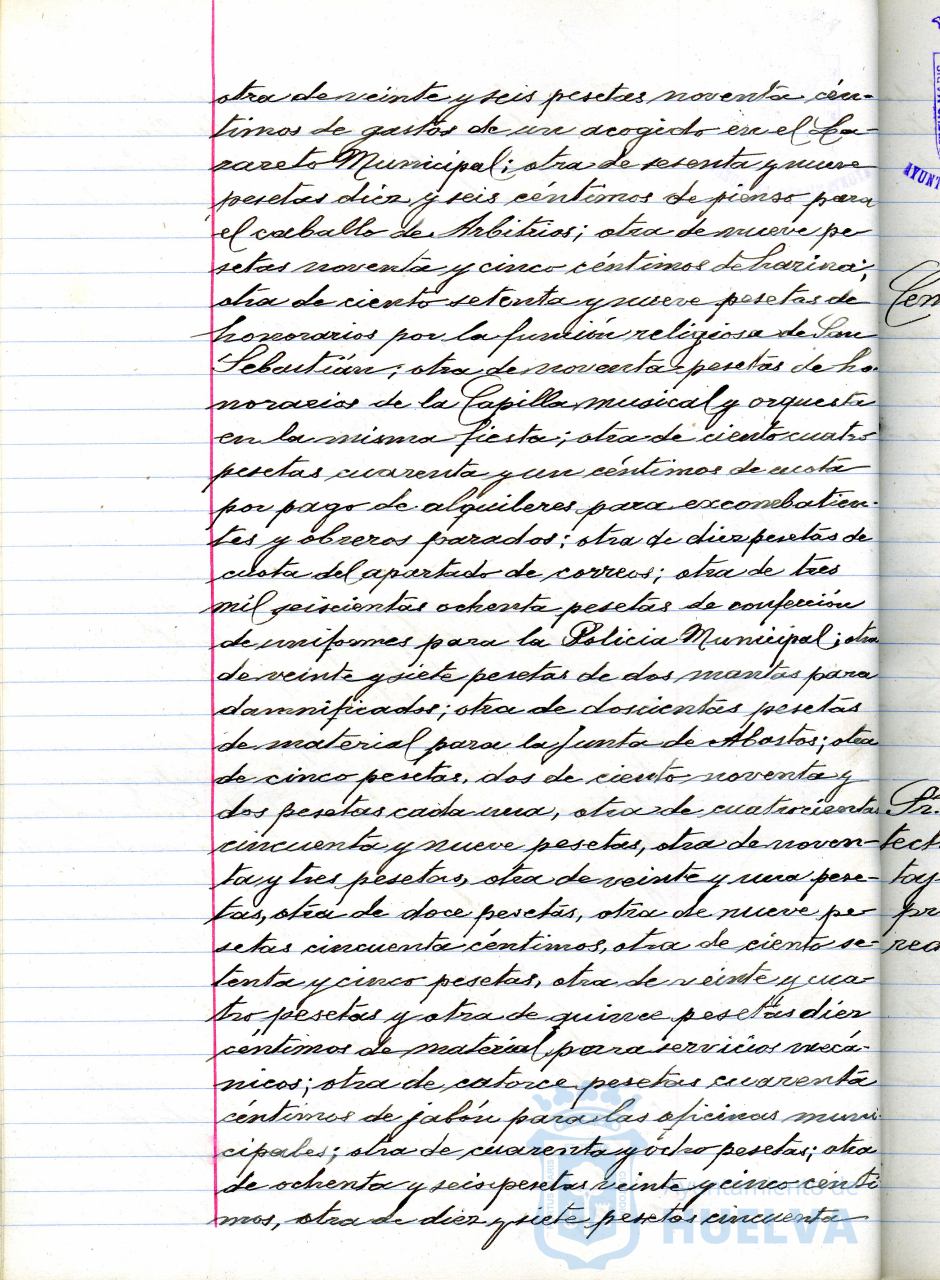 otra de veinte y seis pesetas noventa cén-
timos de gastos de un acogido en el La-
zareto Municipal; otra de sesenta y nueve
pesetas diez y seis céntimos de pienso para
el caballo de Arbitrios; otra de nueve pe
setas noventa y cinco céntimos de harina;
otra de ciento setenta y nueve pesetas de
honorarios por la función religiosa de San
Sebastián; otra de noventa pesetas de ho-
norarios de la Capilla musical y orquesta
en la misma fiesta; otra de ciento cuatro
pesetas cuarenta y un céntimos de cuota
por pago de alquileres para excombatien-
tes y obreros parados; otra de diez pesetas de
cuota del apartado de correos; otra de tres
mil seiscientas ochenta pesetas de confección
de uniformes para la Policia Municipal; otra
de veinte y siete pesetas de dos mantas para
damnificados; otra de doscientas pesetas
de material para la Junta de Abastos; otra
de cinco pesetas, dos de ciento noventa y
dos pesetas cada una, otra de cuatrocientas
cincuenta y nueve pesetas, otra de noven-
ta y tres pesetas, otra de veinte y una pese-
tas, otra de doce pesetas, otra de nueve pe
setas cincuenta céntimos, otra de ciento se-
tenta y cinco pesetas, otra de veinte y cua-
tro pesetas y otra de quince pesetas diez
céntimos de material para servicios mecá-
nicos; otra de catorce pesetas cuarenta
céntimos de jabón para las oficinas muni-
cipales; otra de cuarenta y ocho pesetas; otra
de ochenta y seis pesetas veinte y cinco cénti
mos, otra de diez y siete pesetas cincuenta
Ayuntamiento de
HUELVA